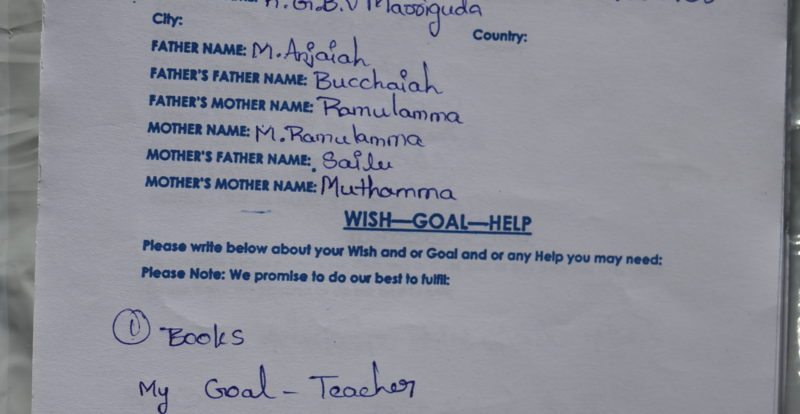 K.G.B.V Massiguda
City: Country:
FATHER NAME: M. Anjaiah
FATHER'S FATHER NAME: Bucchaiah
FATHER'S MOTHER NAME: Ramulamma
MOTHER NAME: M. Ramulamma
MOTHER'S FATHER NAME: Sailu
MOTHER'S MOTHER NAME: Muthamma
WISH—GOAL—HELP
Please write below about your Wish and or Goal and or any Help you may need:
Please Note: We promise to do our best to fulfil:
① Books
My Goal - Teacher